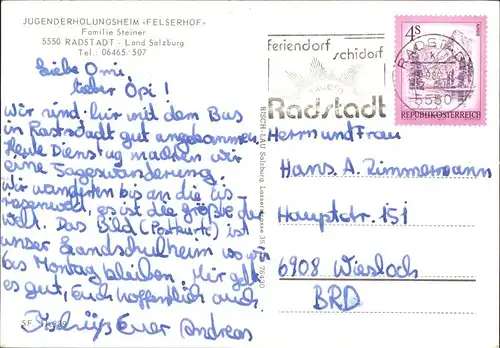 JUGENDERHOLUNGSHEIM «FELSERHOF»
Familie Steiner
5550 RADSTADT - Land Salzburg
Tel.: 06465/507
Liebe Omi,
lieber Opi!
Wir sind hier mit dem Bus
in Rastsdadt gut angekommen
Heute Dienstag machen wir
eine Tageswanderung.
Wir wanderten bis an die Eis-
riesenwelt, es ist die größte der
Welt. Das Bild (Postkarte) ist
unser Landschulheim wo wir
bis Montag bleiben. Mir geht
es gut, Euch hoffentlich auch.
Tschüß Euer Andreas
SF
BISCHLAU Salzburg, Lasserstrasse 35
feriendorf
schidorf
Radstadt
RADSTADT
5550
4S
REPUBLIK ÖSTERREICH
Herrn und Frau
Hans A. Zimmermann
Hauptstr. 151
6908 Wiesloch
BRD